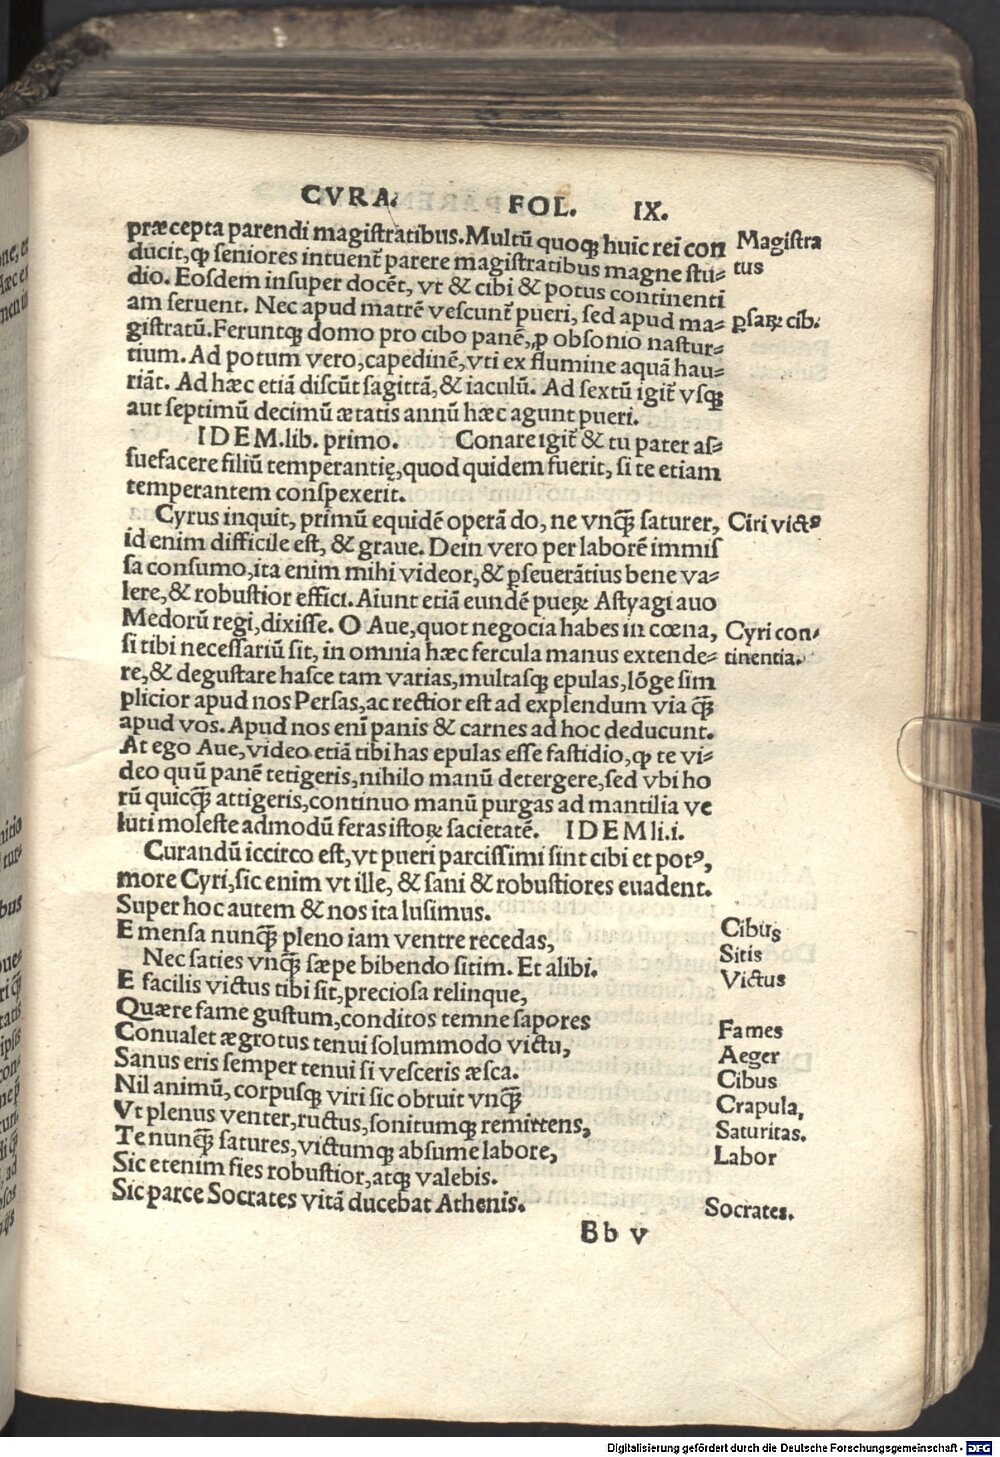 CVRA. FOL. IX.
præcepta parendi magiſtratibus. Multũ quoqꝫ huic rei con Magiſtra
ducit, ꝙ ſeniores intuent᷑ parere magiſtratibus magne ſtu⸗ tus
dio. Eoſdem inſuper docẽt, vt & cibi & potus continenti
am ſeruent. Nec apud matrẽ veſcunt᷑ pueri, ſed apud ma⸗ ꝑſaꝝ cib.
giſtratũ. Feruntqꝫ domo pro cibo panẽ, ꝓ obſonio naſtur⸗
tium. Ad potum vero, capedinẽ, vti ex flumine aquã hau⸗
riãt. Ad hæc etiã diſcũt ſagittã, & iaculũ. Ad ſextũ igit᷑ vſqꝫ
aut ſeptimũ decimũ ætatis annũ hæc agunt pueri.
IDEM. lib. primo. Conare igit᷑ & tu pater aſ⸗
ſuefacere filiũ temperantię, quod quidem fuerit, ſi te etiam
temperantem conſpexerit.
Cyrus inquit, primũ equidẽ operã do, ne vnqꝫ̃ ſaturer, Ciri victꝰ
id enim difficile eſt, & graue. Dein vero per laborẽ immiſ
ſa conſumo, ita enim mihi videor, & ꝑſeuerãtius bene va⸗
lere, & robuſtior effici. Aiunt etiã eundẽ pueꝝ Aſtyagi auo
Medorũ regi, dixiſſe. O Aue, quot negocia habes in cœna, Cyri con⸗
ſi tibi neceſſariũ ſit, in omnia hæc fercula manus extende⸗ tinentia.
re, & deguſtare haſce tam varias, multaſqꝫ epulas, lõge ſim
plicior apud nos Perſas, ac rectior eſt ad explendum via qꝫ̃
apud vos. Apud nos eni᷑ panis & carnes ad hoc deducunt.
At ego Aue, video etiã tibi has epulas eſſe faſtidio, ꝙ te vi⸗
deo quũ panẽ tetigeris, nihilo manũ detergere, ſed vbi ho
rũ quicqꝫ̃ attigeris, continuo manũ purgas ad mantilia ve
luti moleſte admodũ feras iſtoꝝ ſacietatẽ. IDEM li. i.
Curandũ iccirco eſt, vt pueri parciſſimi ſint cibi et potꝰ,
more Cyri, ſic enim vt ille, & ſani & robuſtiores euadent.
Super hoc autem & nos ita luſimus.
E menſa nunqꝫ̃ pleno iam ventre recedas, Cibus
Nec ſaties vnqꝫ̃ ſæpe bibendo ſitim. Et alibi. Sitis
E facilis victus tibi ſit, precioſa relinque, Victus
Quære fame guſtum, conditos temne ſapores Fames
Conualet ægrotus tenui ſolummodo victu, Aeger
Sanus eris ſemper tenui ſi veſceris æſca. Cibus
Nil animũ, corpuſqꝫ viri ſic obruit vnqꝫ̃ Crapula,
Vt plenus venter, ructus, ſonitumqꝫ remittens, Saturitas.
Te nunqꝫ̃ ſatures, victumqꝫ abſume labore, Labor
Sic etenim fies robuſtior, atqꝫ valebis.
Sic parce Socrates vitã ducebat Athenis. Socrates.
Bb v
Digitalisierung gefördert durch die Deutsche Forschungsgemeinschaft - DFG